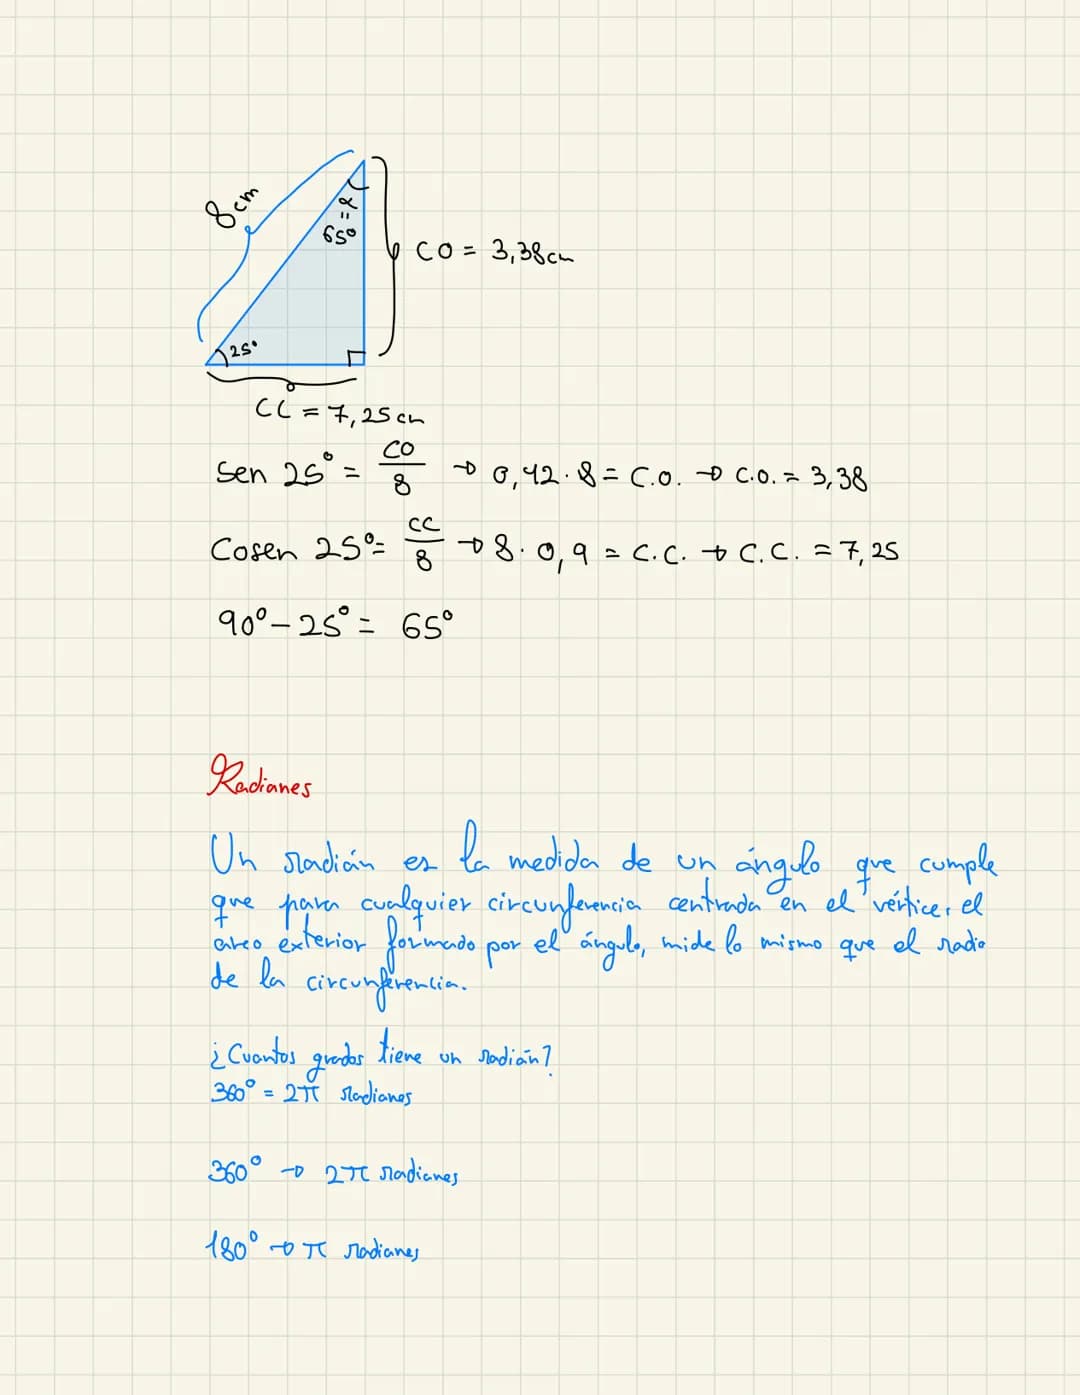 8cm
65° = α
CO = 3,38cm
25°
CC = 7,25cm
Sen 25° = CO/8 → 0,42·8 = C.O. → C.O. = 3,38
Cosen 25° = CC/8 → 8·0,9 = C.C. → C.C. = 7,25
90° - 25° = 65°
Radianes
Un radián es la medida de un ángulo que cumple
que para cualquier circunferencia centrada en el vértice, el
arco exterior formado por el ángulo, mide lo mismo que el radio
de la circunferencia.
¿Cuantos grados tiene un radián?
360° = 2π radianes
360° → 2π radianes
180° → π radianes